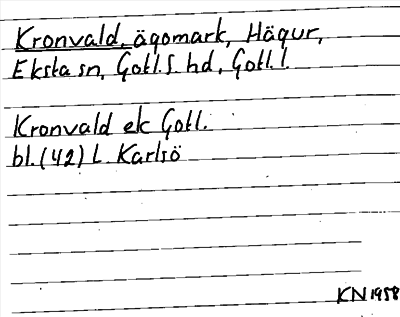 Kronvald, ägomark, Hägur,
Eksta sn, Gotl. s. hd, Gotl. l.
Kronvald ek Gotl.
bl. (42) L. Karlsö
KN 1958